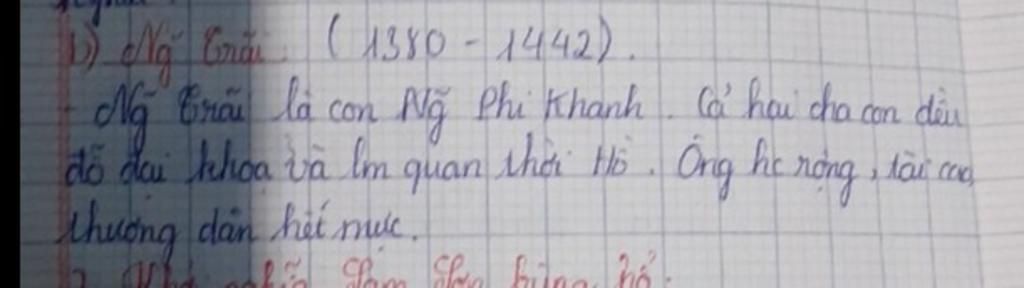 b) Ng~ Trãi (1380 - 1442).
- Ng~ Trãi là con Ng~ Phi Khanh. Cả hai cha con đều
đỗ đại khoa và lm quan thời Hồ. Ông hc rộng, tài cao,
thương dân hết mực.